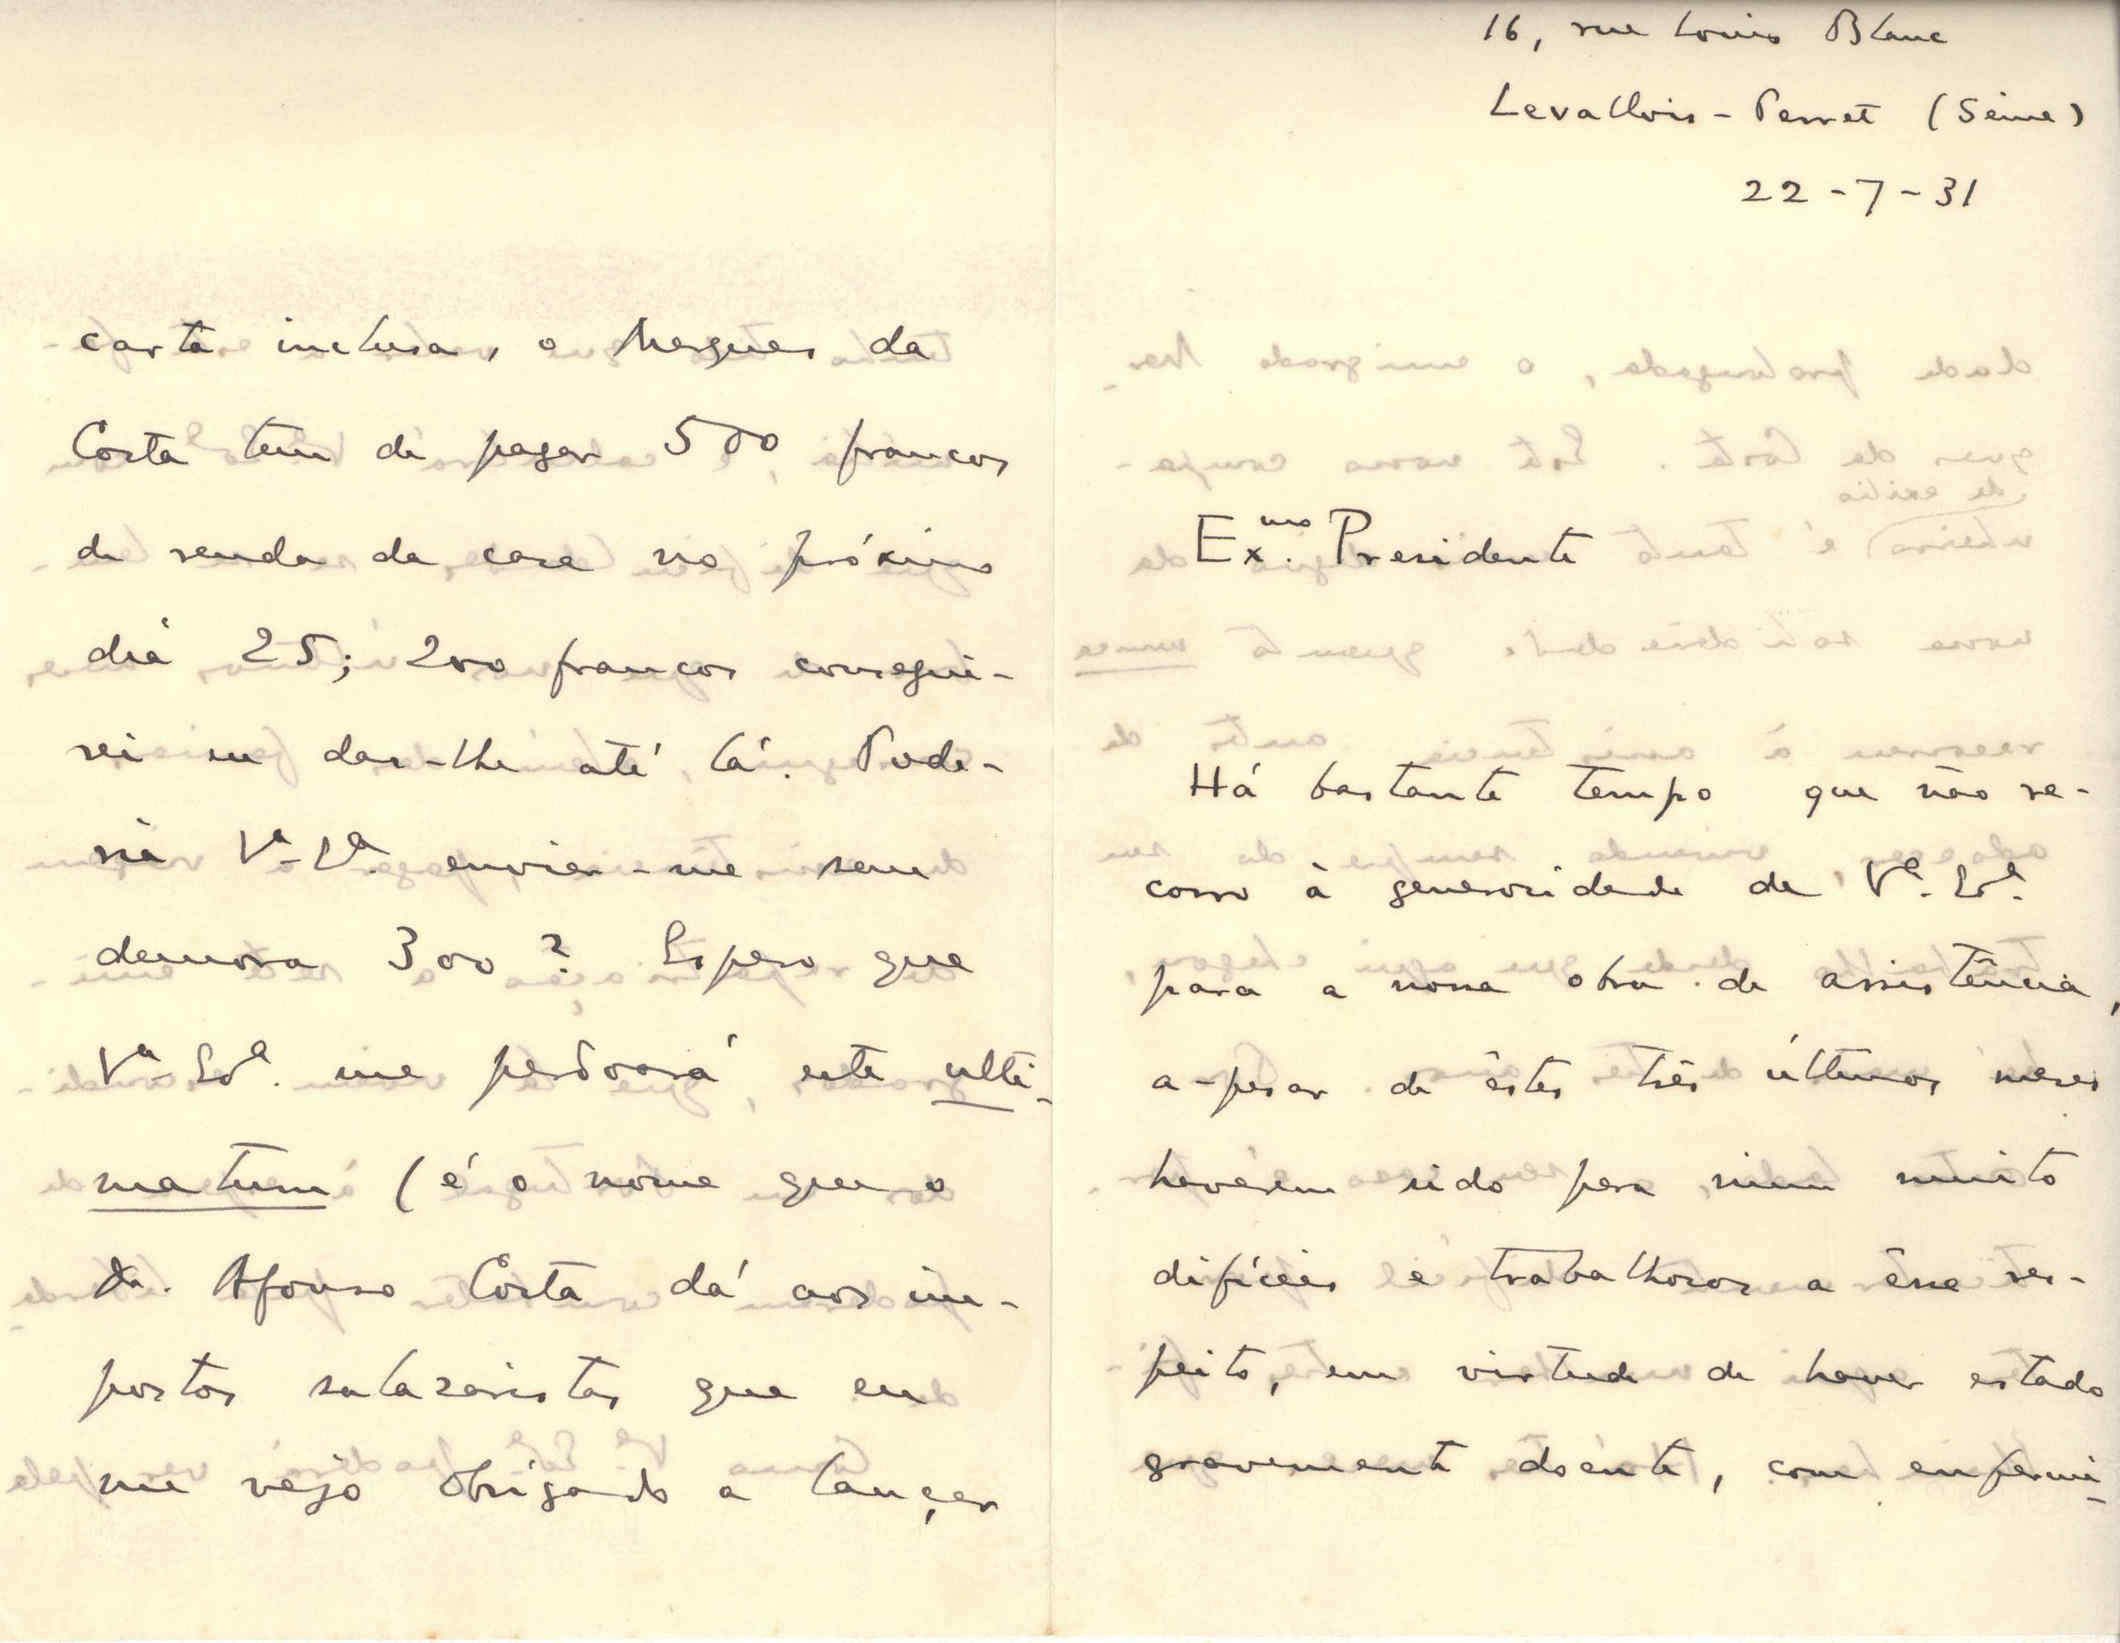 16, rue Louis Blanc
Levallois-Perret (Seine)
22-7-31
Ex.mo Presidente
Há bastante tempo que não re-
corro à generosidade de V.ª Ex.ª
para a nossa obra de assistência,
a-pesar de êstes três últimos meses
haverem sido para mim muito
difíceis e trabalhosos a êsse res-
peito, em virtude de haver estado
gravemente doente, com enfermi-
carta inclusa, o Mergues da
Costa tem de pagar 500 francos
de renda da casa no próximo
dia 25; 200 francos consegui-
rei eu dar-lhe até lá. Pode-
ria V.ª Ex.ª enviar-me sem
demora 300? Espero que
V.ª Ex.ª me perdoará este ulti-
matum (é o nome que o
dr. Afonso Costa dá aos im-
postos salazaristas que eu
me vejo obrigado a lançar